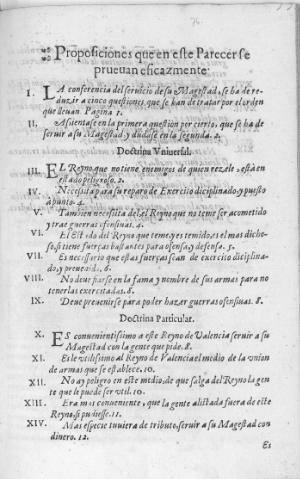 Proposiciones que en este Parecer se
prueuan eficazmente:
I. LA conferencia del seruicio de su Magestad, se ha de
reduzir a cinco questiones, que se han de tratar por el orden
que lleuan Pagina 1.
II. Asientase en la primera question por cierto, que se ha de
seruir a su Magestad, y dudase en la segunda. 2.
Doctrina Vniuersal.
III. EL Reyno que no tiene enemigos de quien rezele, està en
estado peligroso. 2.
IV. Necessita para su reparo de Exercito diciplinado, y puesto
à punto. 4.
V. Tambien necessita de las Reyno que no teme ser acometido
y trae guerras ofensiuas. 4.
VI. El Estado del Reyno que teme, y es temido, es el mas dicho-
so, si tiene fuerças bastantes para ofensa, y defensa. 5.
VII. Es necessario que estas fuerças sean de exercito diciplina-
do, y preuenido. 6.
VIII. No deue fiarse en la fama y nombre de sus armas para no
tenerlas exercitadas. 8.
IX. Deue preuenirse para poder hazer guerras ofensiuas. 8.
Doctrina Particular.
X. ES conuenientissimo a este Reyno de Valencia seruir a su
Magestad con la gente que pide. 8.
XI. Es le vtilissimo al Reyno de Valencia el medio de la vnion
de armas que se establece. 10.
XII. No ay peligro en este medio, de que salga del Reyno la gen
te que le puede ser vtil. 10.
XIII. Era mas conueniente, que la gente alistada fuera de este
Reyno, si pudiesse. 11.
XIV. Mas especie tuuiera de tributo, seruir a su Magestad con
dinero. 12.
Es